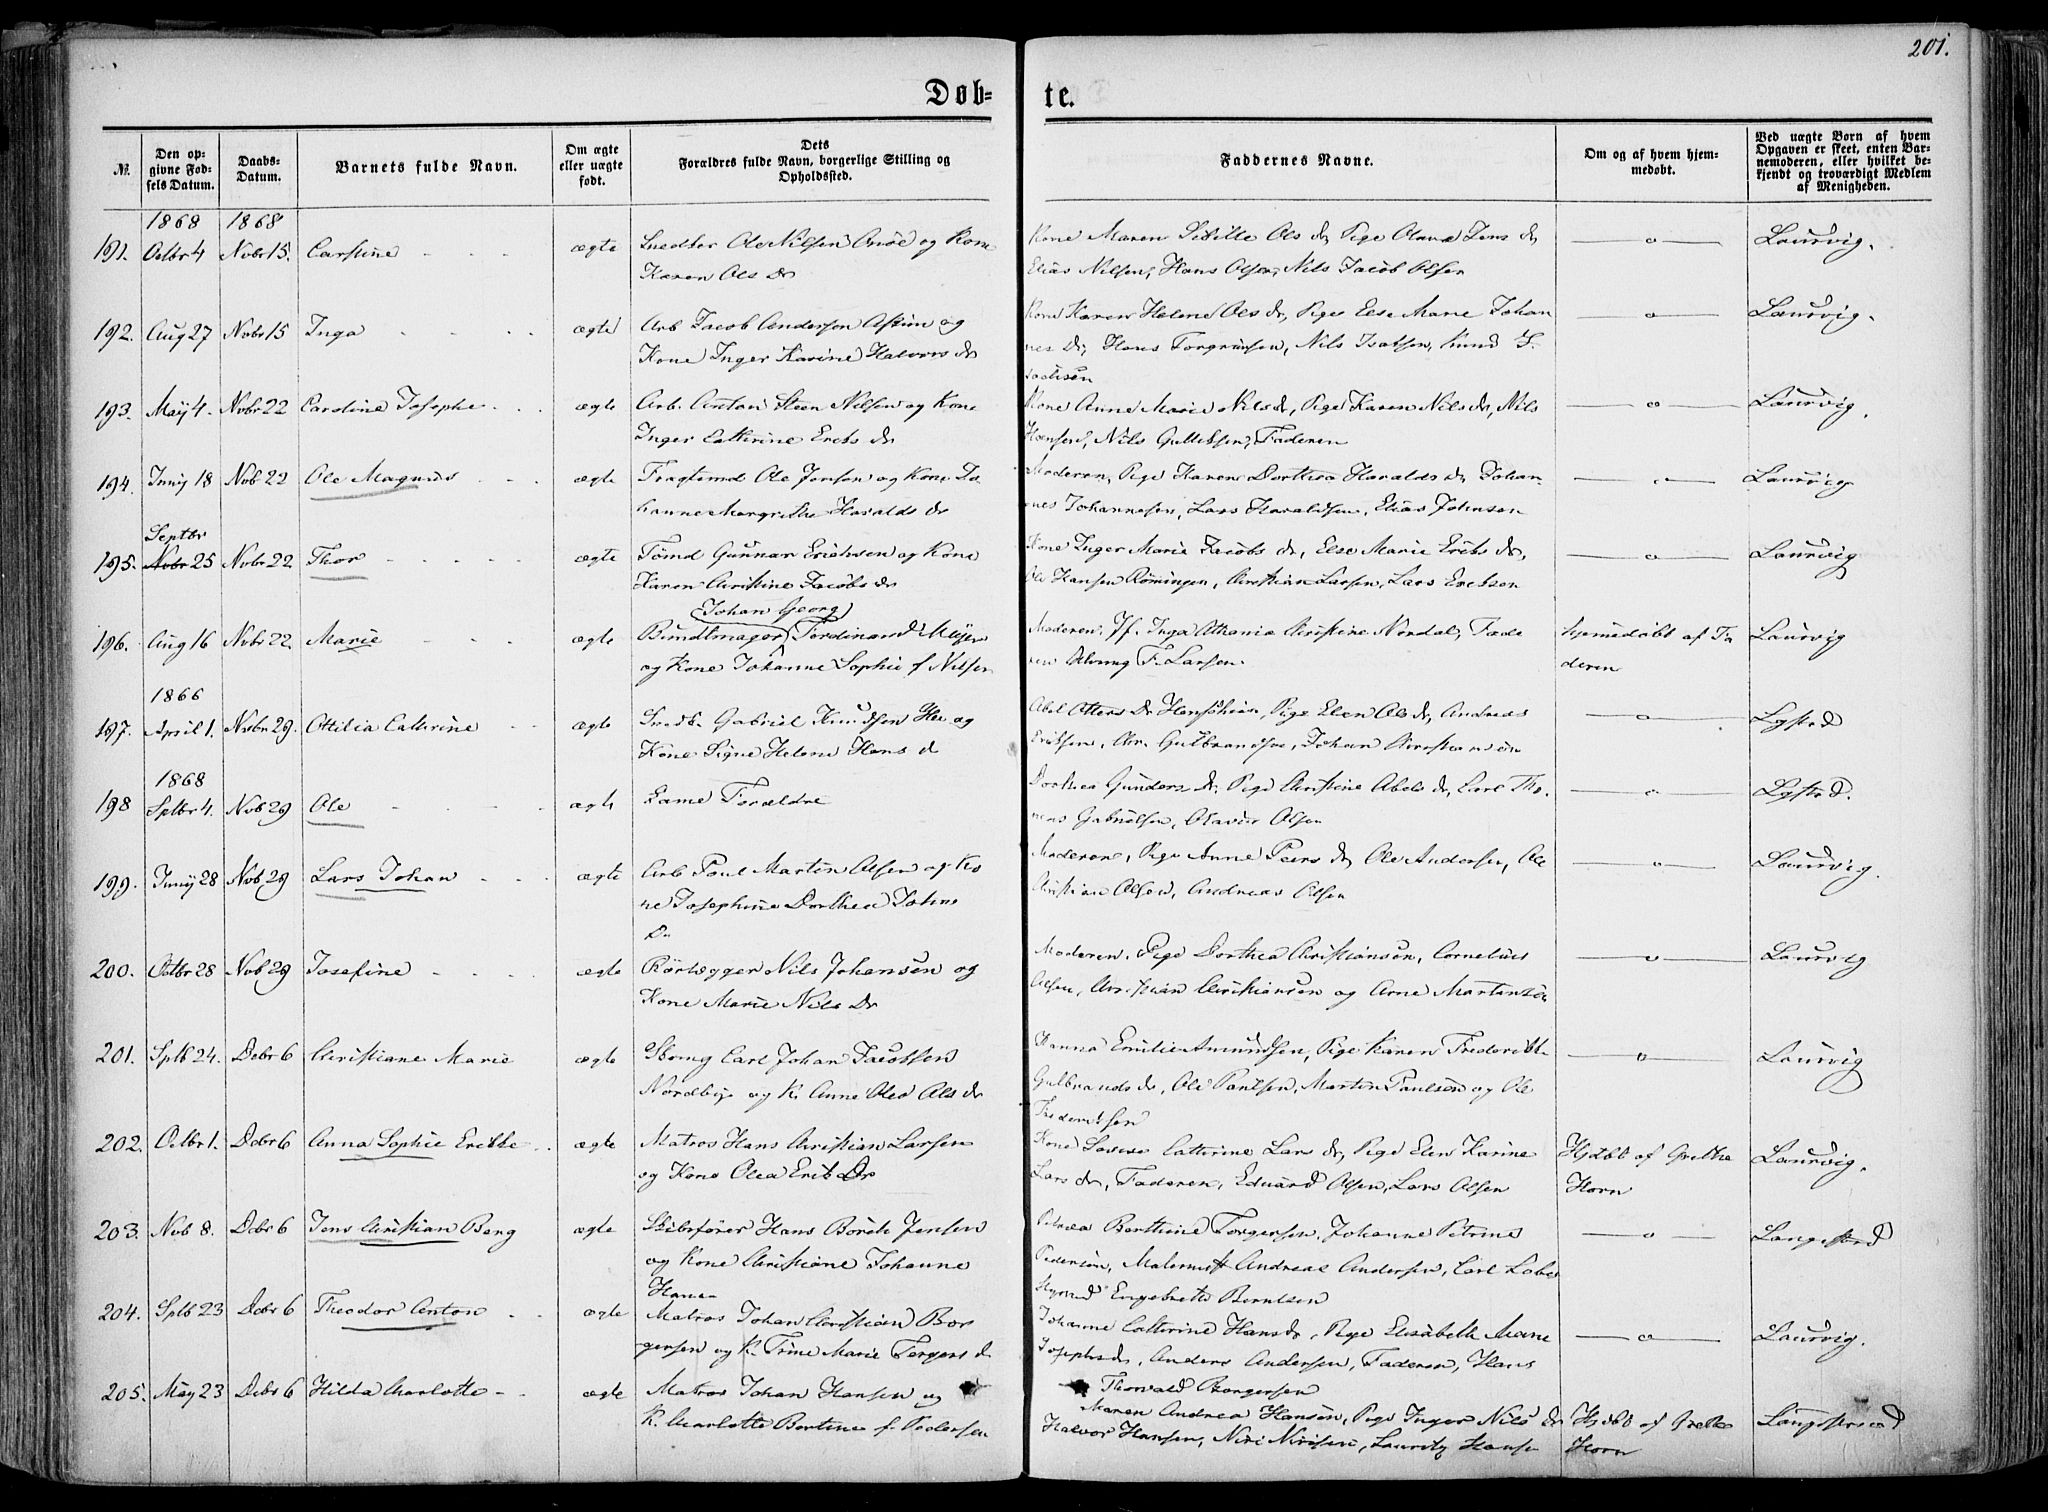 201.
Døb=
te.
№.
Den op-
givne Fød-
sels Datum.
Daabs-
Datum.
Barnets fulde Navn.
Om ægte
eller uægte
født.
Dets
Forældres fulde Navn, borgerlige Stilling og
Opholdssted.
Faddernes Navne.
Om og af hvem hjem-
medøbt.
Ved uægte Børn af hvem
Opgaven er skeet, enten Bar-
nemoderen, eller hvilket be-
kjendt og troværdigt Medlem
af Menigheden.
1868 1868
191. Octbr 4 Novbr 15. Carstine - - - ægte Ole Nilsen og Kone Kone Maren Sicille Ols dr, Pige Olava Jens dr, —o— Laurvig.
Karen Ols Dr Elias Nilsen, Hans Olsen, Nils Jacob Olsen
192. Aug 27 Novbr 15 Inga - - - ægte Arb Jacob Andersen og Kone Karen Helene Ols dr, Pige Else Marie Johan —o— Laurvig.
Kone Inger Karine Halvors dr nes Dr, Hans Torgrimsen, Nils Isaksen, Knud S.
193. May 4. Novbr 22 Caroline Josephe - - ægte Arb. Anton Steen Nilsen og Kone Kone Anne Marie Nils dr, Pige Karen Nils dr, Nils —o— Laurvig.
Inger Cathrine Erics dr Hansen, Nils Gulliksen, Faderen
194. Juny 18 Nvb 22 Ole Magnus - - ægte Fragtemd Ole Jensen og Kone Jo Moderen, Pige Karen Dorthea Haralds dr, Johan- —o— Laurvig
hanne Margrethe Haralds dr nes Johannesen, Lars Haraldsen, Elias Johnsen
Septbr
195. Novbr 25 Novbr 22 Thor - - - ægte Tømd Gunnar Ericksen og Kone Kone Inger Marie Jacobs dr, Else Marie Erics dr, —o— Laurvig
Karen Christine Jacobs dr Ole Hansen Rømingen, Christian Larsen, Lars Ericksen
Johan Georg
196. Aug 16 Novbr 22. Marie - - - ægte Bundtmager Ferdinand Meyer Moderen, Jf. Inga Athania Christine Nordal, Fade hjemmedøbt af Fa Laurvig
og Kone Johanne Sophie f Nilsen ren F. Larsen deren
1866
197. April 1. Novbr 29. Ottilia Cathrine - - ægte Gabriel Knudsen og Abel Atters Dr Pige Elen Ols dr, Andreas —o— Lysted
Kone Signe Helene Hans d Ericksen, Chr. Gulbrandsen, Johan Christiansen
1868
198 Sptbr 4. Nvb 29 Ole - - - ægte Same Forældre Dorthea Gunders dr, Pige Christine Abels dr, Carl Tho- —o— Lysted.
Gabrielsen, Olavus Olsen
199. Juny 28 Nvb 29 Lars Johan - - - ægte Arb Poul Martin Olsen og Ko Moderen, Pige Anne Peers dr, Ole Andersen, Ole —o— Laurvig.
ne Josephine Dorthea Johns Christian Olsen, Andreas Olsen
Dr
200. Octbr 28 Nvb 29 Josefine - - - ægte Rørlægger Nils Johansen og Moderen, Pige Dorthea Christiansen, Cornelius —o— Laurvig
Kone Marie Nils Dr Olsen, Christian Christiansen og Arne Martinsen
201. Sptb 24. Decbr 6 Christiane Marie ægte Carl Johan Jacobsen Hanna Emilie Amundsen, Pige Karen Frederikke —o— Laurvig
Nordby og K. Anne Olea Ols dr Gulbrands dr, Ole Paulsen, Martin Paulsen og Ole
Fredericksen
202. Octbr 1. Decbr 6 Anna Sophie Erikke - - ægte Matros Hans Christian Larsen Kone Cathrine Lars dr, Pige Elen Karine Hjdøbt af Grethe Laurvig.
og Kone Olea Erics Dr Lars dr, Faderen, Eduard Olsen, Lars Olsen Horn
203. Nvb 8. Decbr 6 Jens Christian Berg ægte Skibsfører Hans Borch Jensen Petrea Berthine Torgersen, Johanne Petrine —o— Langestrd
og Kone Christiane Johanne Pedersen, Malermstr Andreas Andersen, Carl
Hansen Styrmd Engebreth Berntsen
204. Sptb 23 Decbr 6 Theodor Anton - - ægte Matros Johan Christian Bor Johanne Cathrine Hans dr, Pige Elisabeth Marie —o— Laurvig.
gersen og K. Trine Marie Torgers d Josephs dr, Anders Andersen, Faderen, Hans
Thorvald Borgersen
205. May 23 Decbr 6 Hilda Charlotte - - ægte Matros Johan Hansen og Maren Andrea Hansen, Pige Inger Nils dr Hjdøbt af Grethe Langestrand
K. Charlotte Bertine f. Pedersen Halvor Hansen, Lauritz Hansen Horn